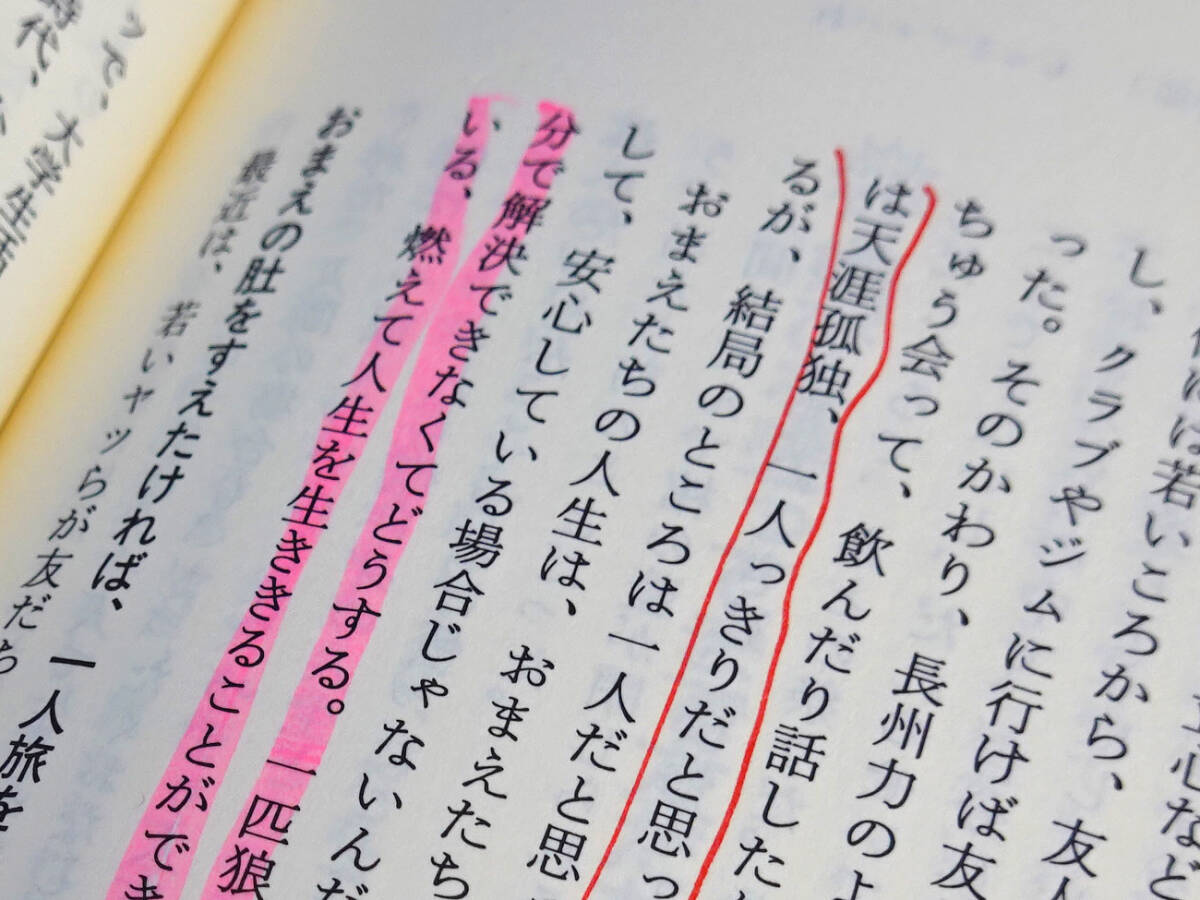 心など
は若いころから、友人
し、クラブやジムに行けば友
った。そのかわり、長州力のよ
ちゅう会って、飲んだり話した
は天涯孤独、一人っきりだと思っ
るが、結局のところは一人だと思
おまえたちの人生は、おまえたち
して、安心している場合じゃないんだ
分で解決できなくてどうする。一匹狼
いる、燃えて人生を生ききることができ
おまえの肚をすえたければ、一人旅を
最近は、若いヤツらが友だち
って、大学生活
時代、